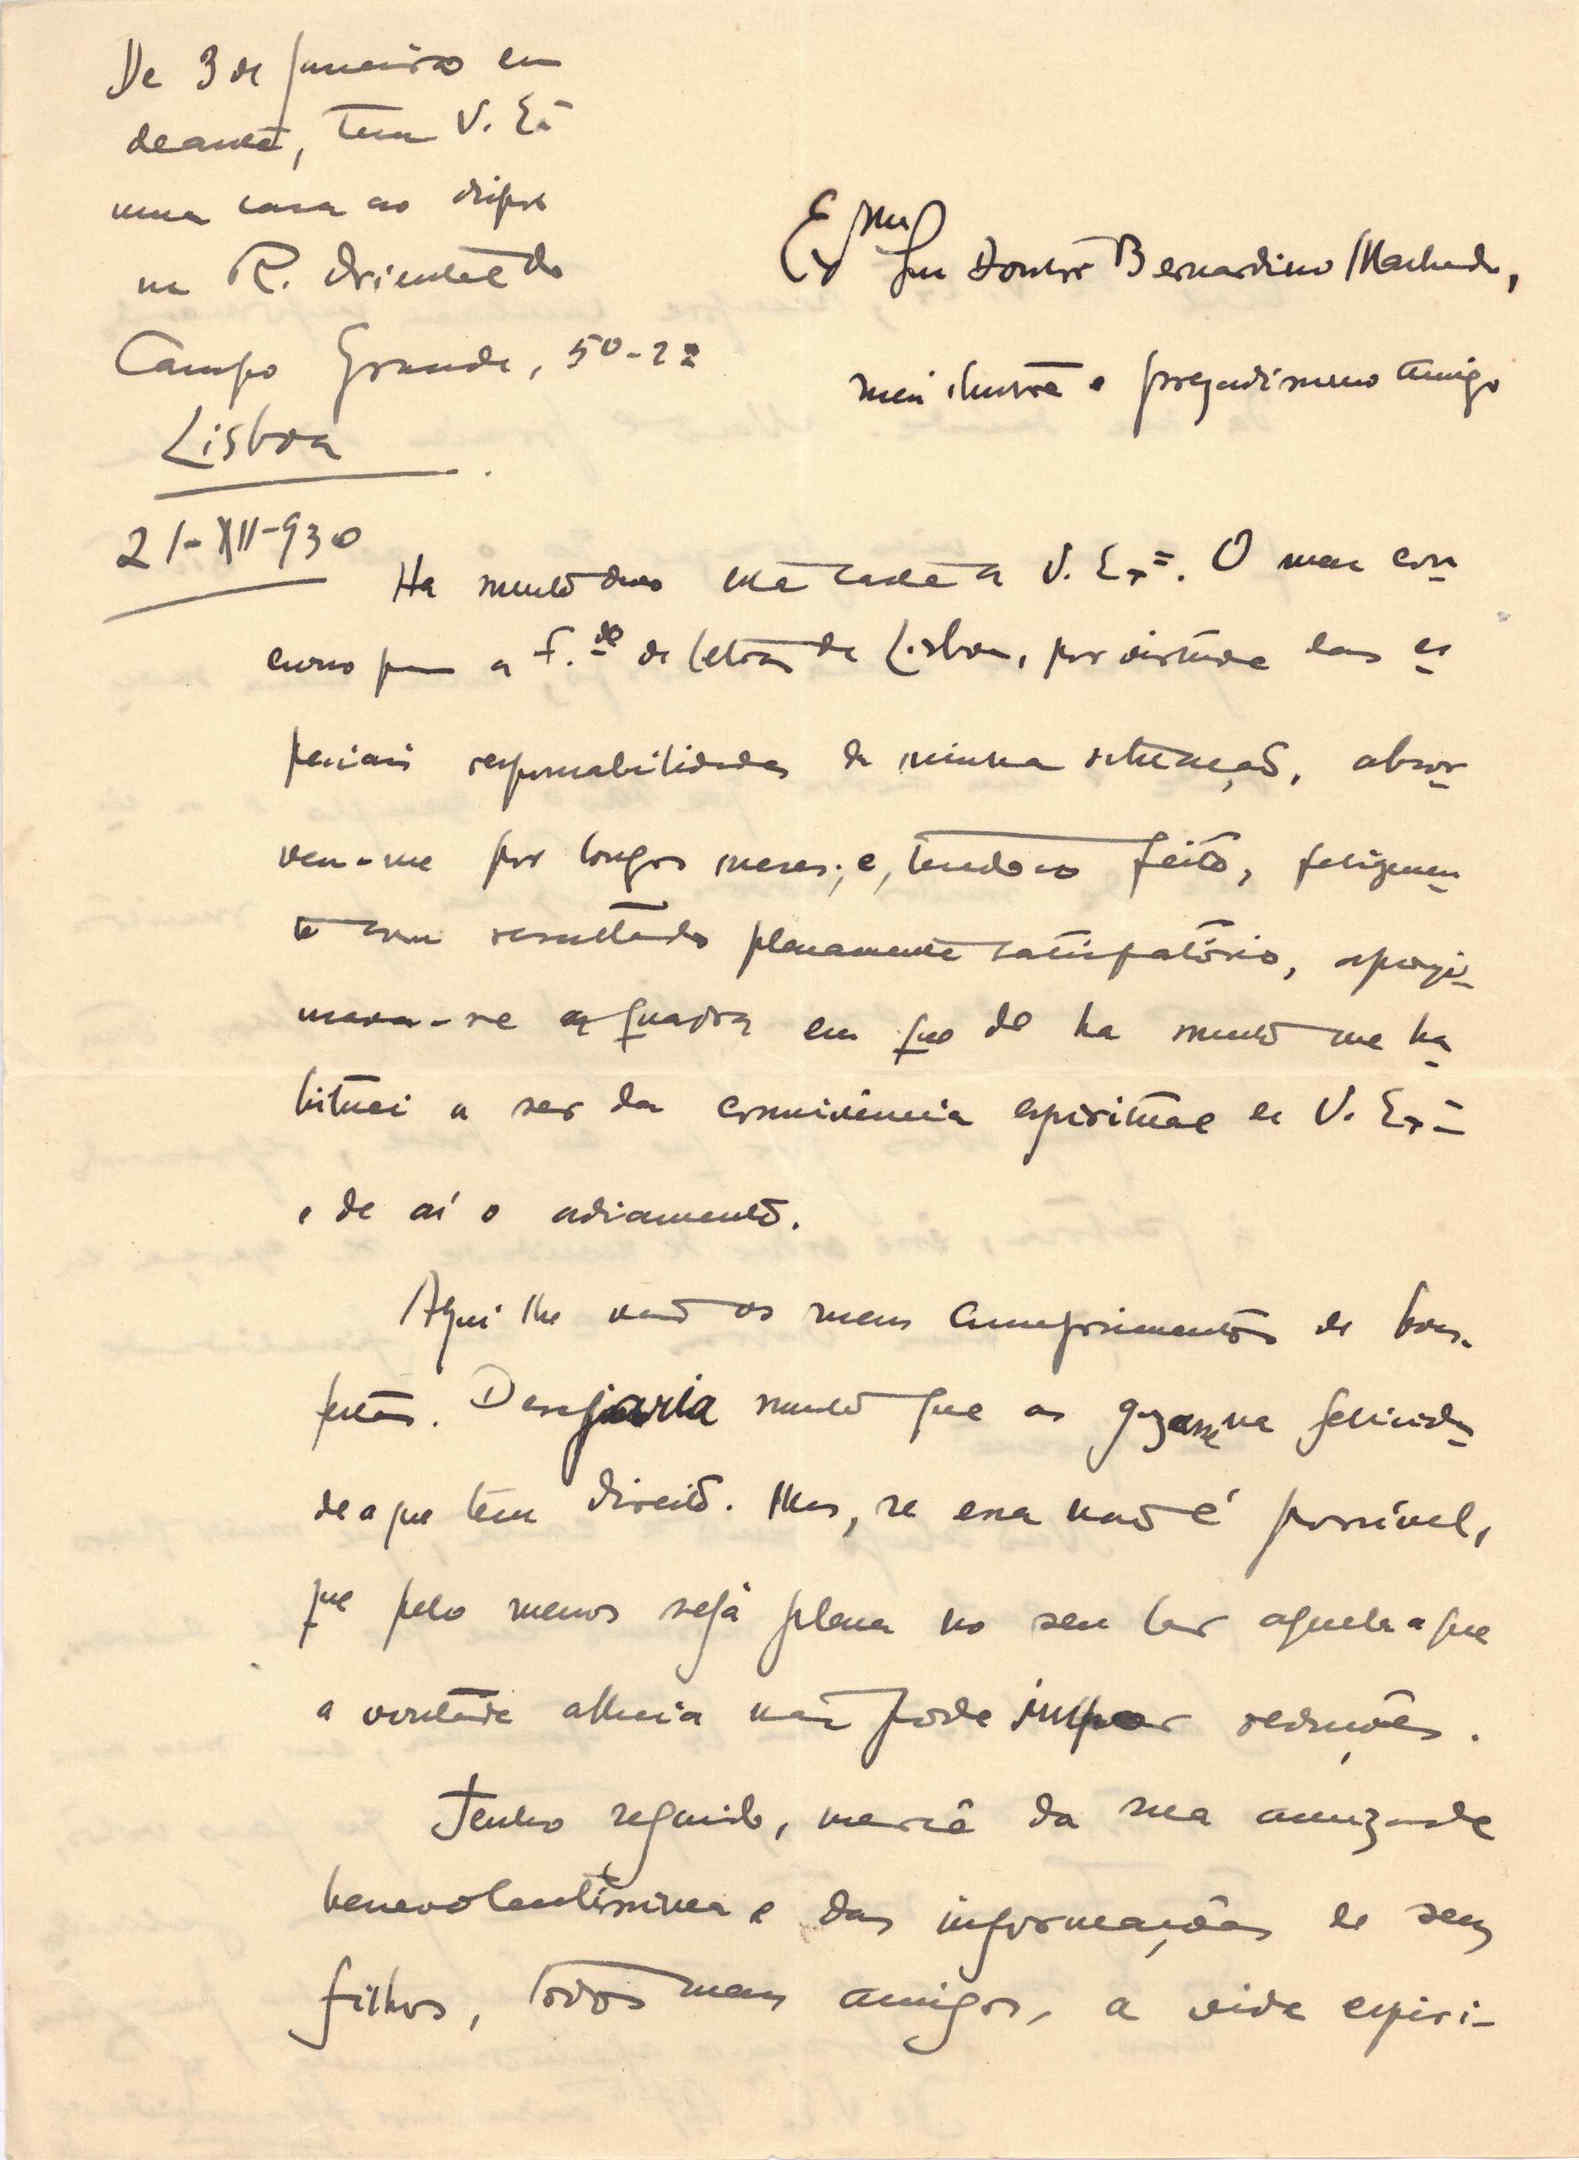 De 3 de Janeiro em
deante, tem V. Exª
uma casa ao dispor
na R. Oriental do
Campo Grande, 50-2º
Lisboa
21-XII-930
Exmº Snr Doutor Bernardino Machado,
meu ilustre e prezadissimo amigo
Ha muito devo esta carta a V. Exª. O meu con
curso para a F.de de Letras de Lisboa, por virtude das es
peciais responsabilidades da minha situação, absor
veu-me por longos meses; e, tendo-o feito, felizmen
te com resultado plenamente satisfatório, aproxi
mava-se a quadra em que de ha muito me ha
bituei a ser da convivência espiritual de V. Exª
e de aí o adiamento.
Aqui lhe vão os meus cumprimentos de boas-
festas. Desejaria muito que as gozasse na felicida
de a que tem direito. Mas, se essa não é possível,
que pelo menos seja plena no seu lar aquela a que
a vontade alheia não pode impor reduções.
Tenho seguido, mercê da sua amizade
benevolentíssima e das informações de seus
filhos, todos meus amigos, a vida espiri-